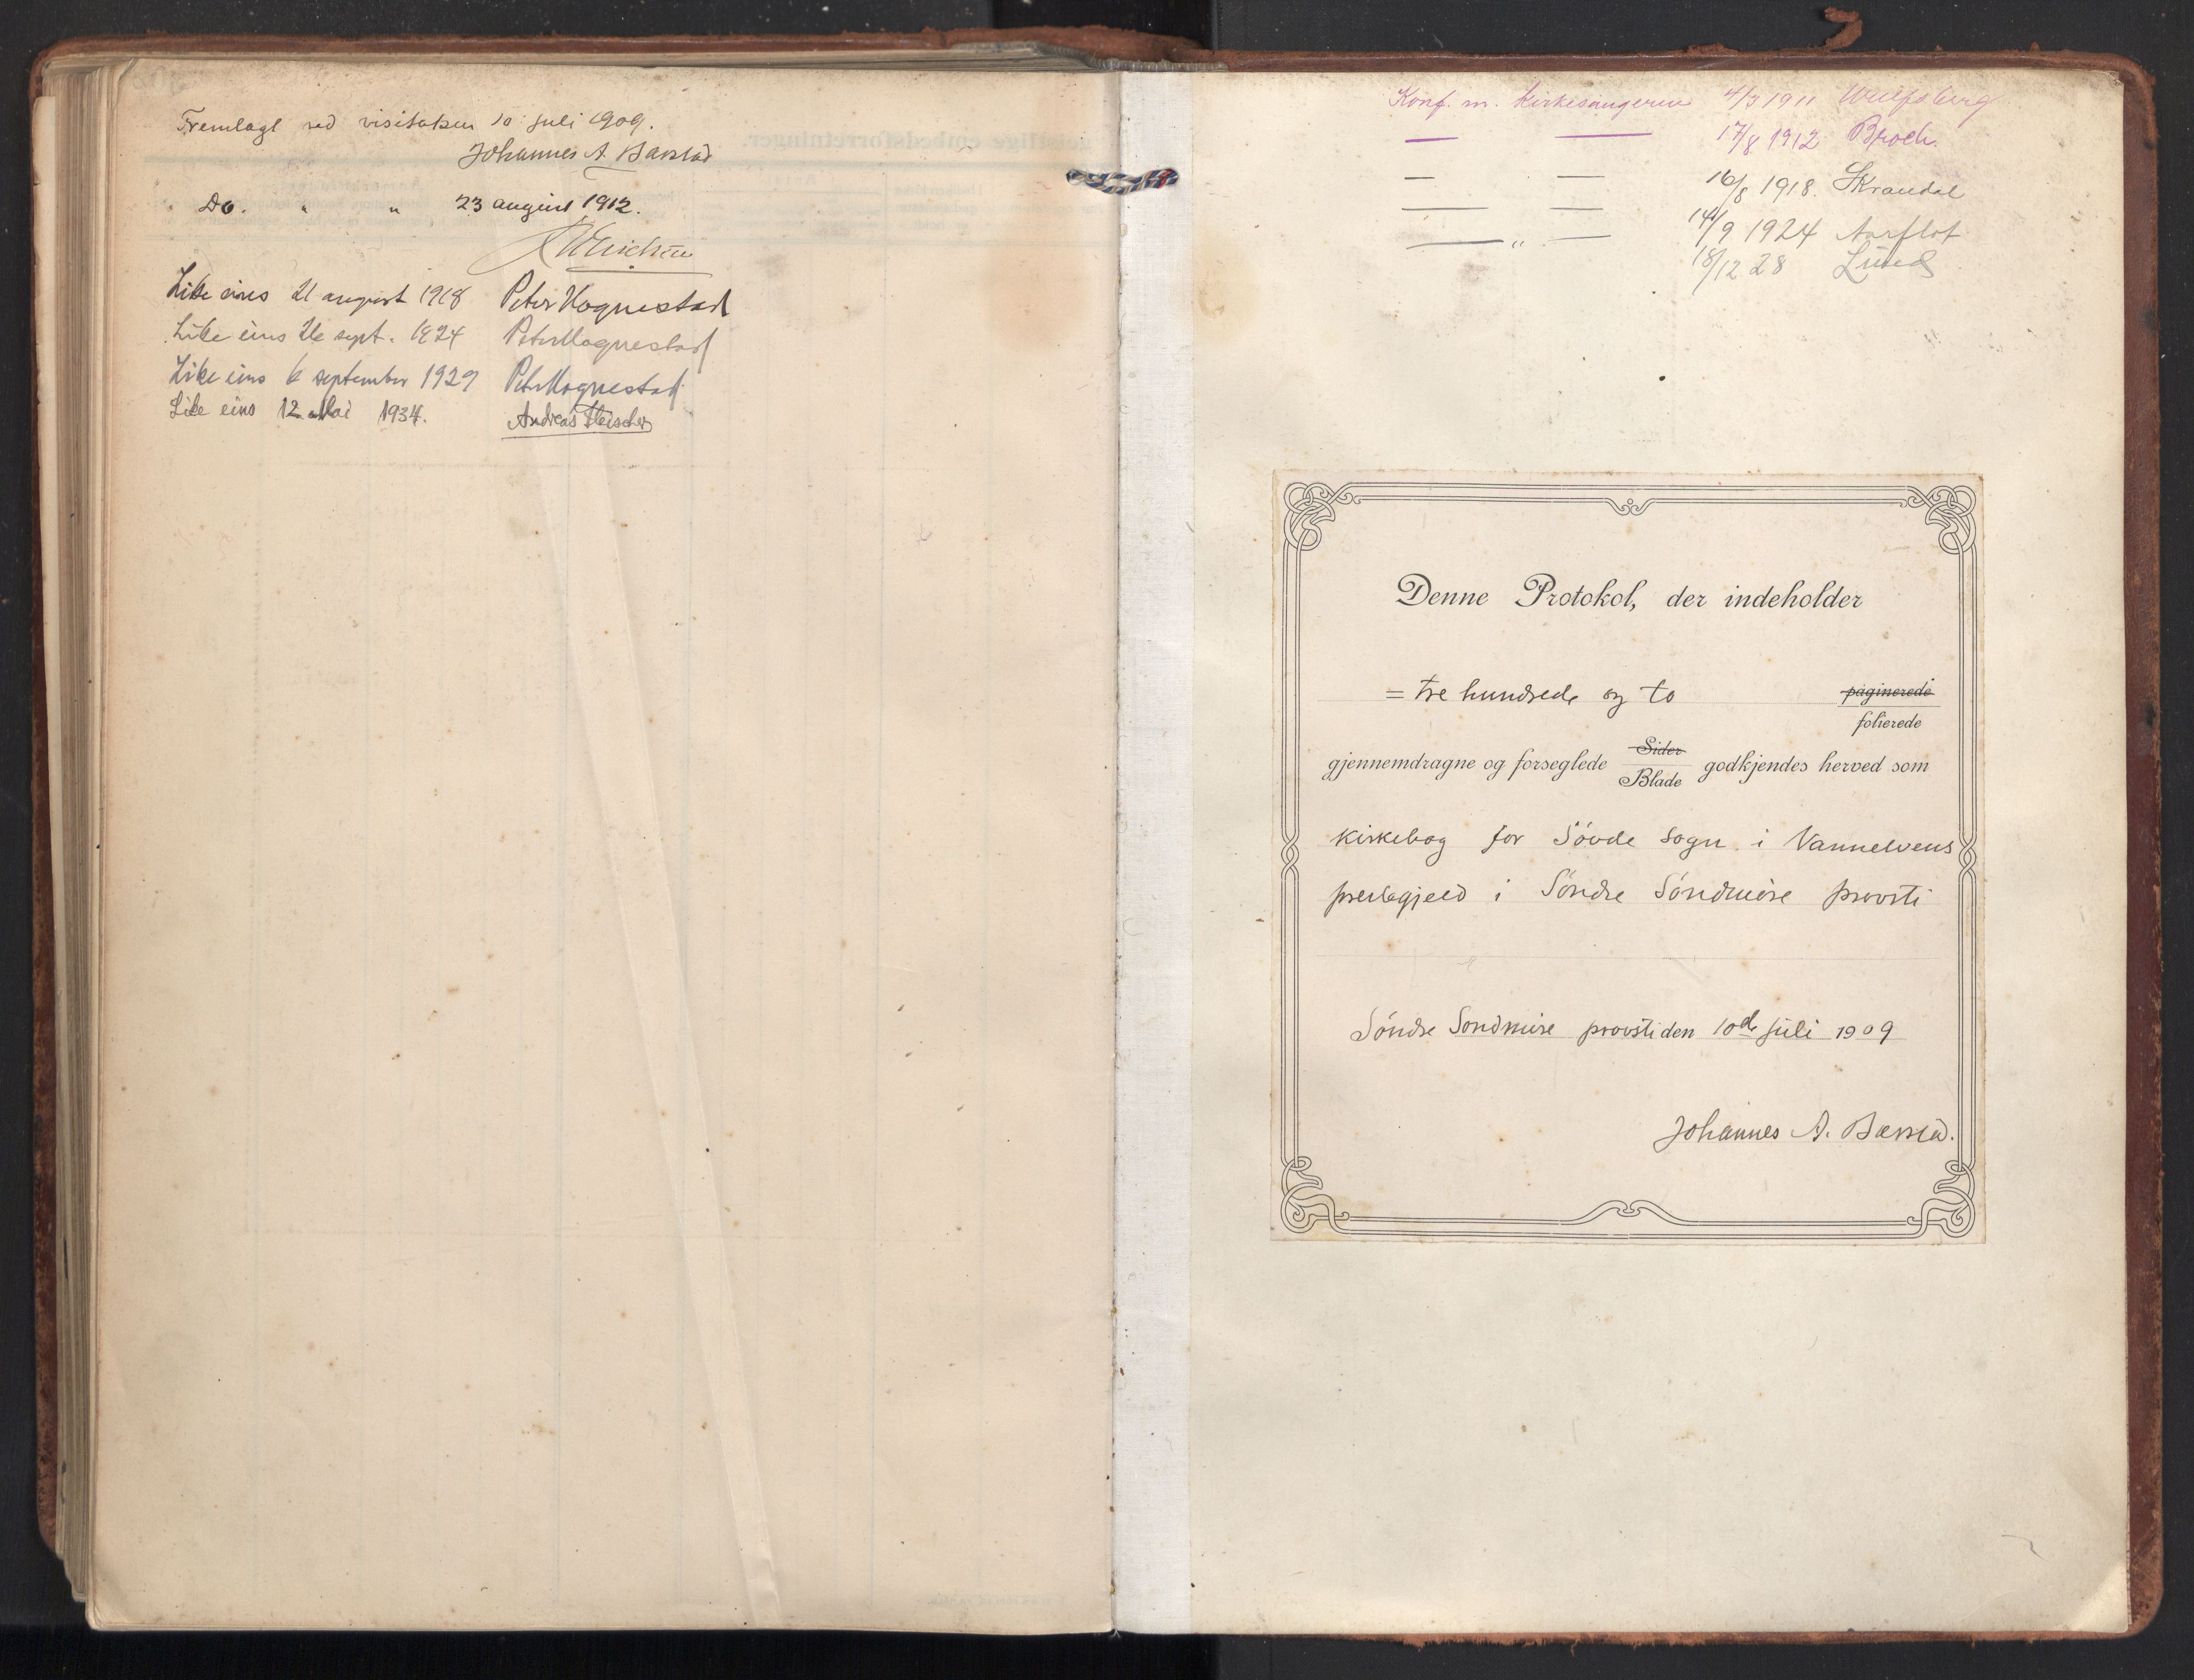 Fremlagt ved visitatsen 10 juli 1909.
Johannes A. Barstad
Do. " " 23 august 1912.
Like eins 21 august 1918 Peter Hognestad
Like eins 26 sept. 1924 Peter Hognestad
Like eins 6 september 1929 Peter Hognestad
Like eins 12 Mai 1934. Andreas Fleischer
Konf. m. kirkesangerens 4/3 1911 Wulfsberg
— — 17/8 1912 Broch.
— — 16/8 1918. Skrondal
— — 14/9 1924 Aarflot
— " — 18/12 28 Lund
Denne Protokol, der indeholder
= tre hundrede og to paginerede
folierede
gjennemdragne og forseglede Sider godkjendes herved som
Blade
kirkebog for Søvde sogn i Vannelvens
prestegjeld i Søndre Søndmøre provsti
Søndre Søndmøre provsti den 10de juli 1909
Johannes A. Barstad.